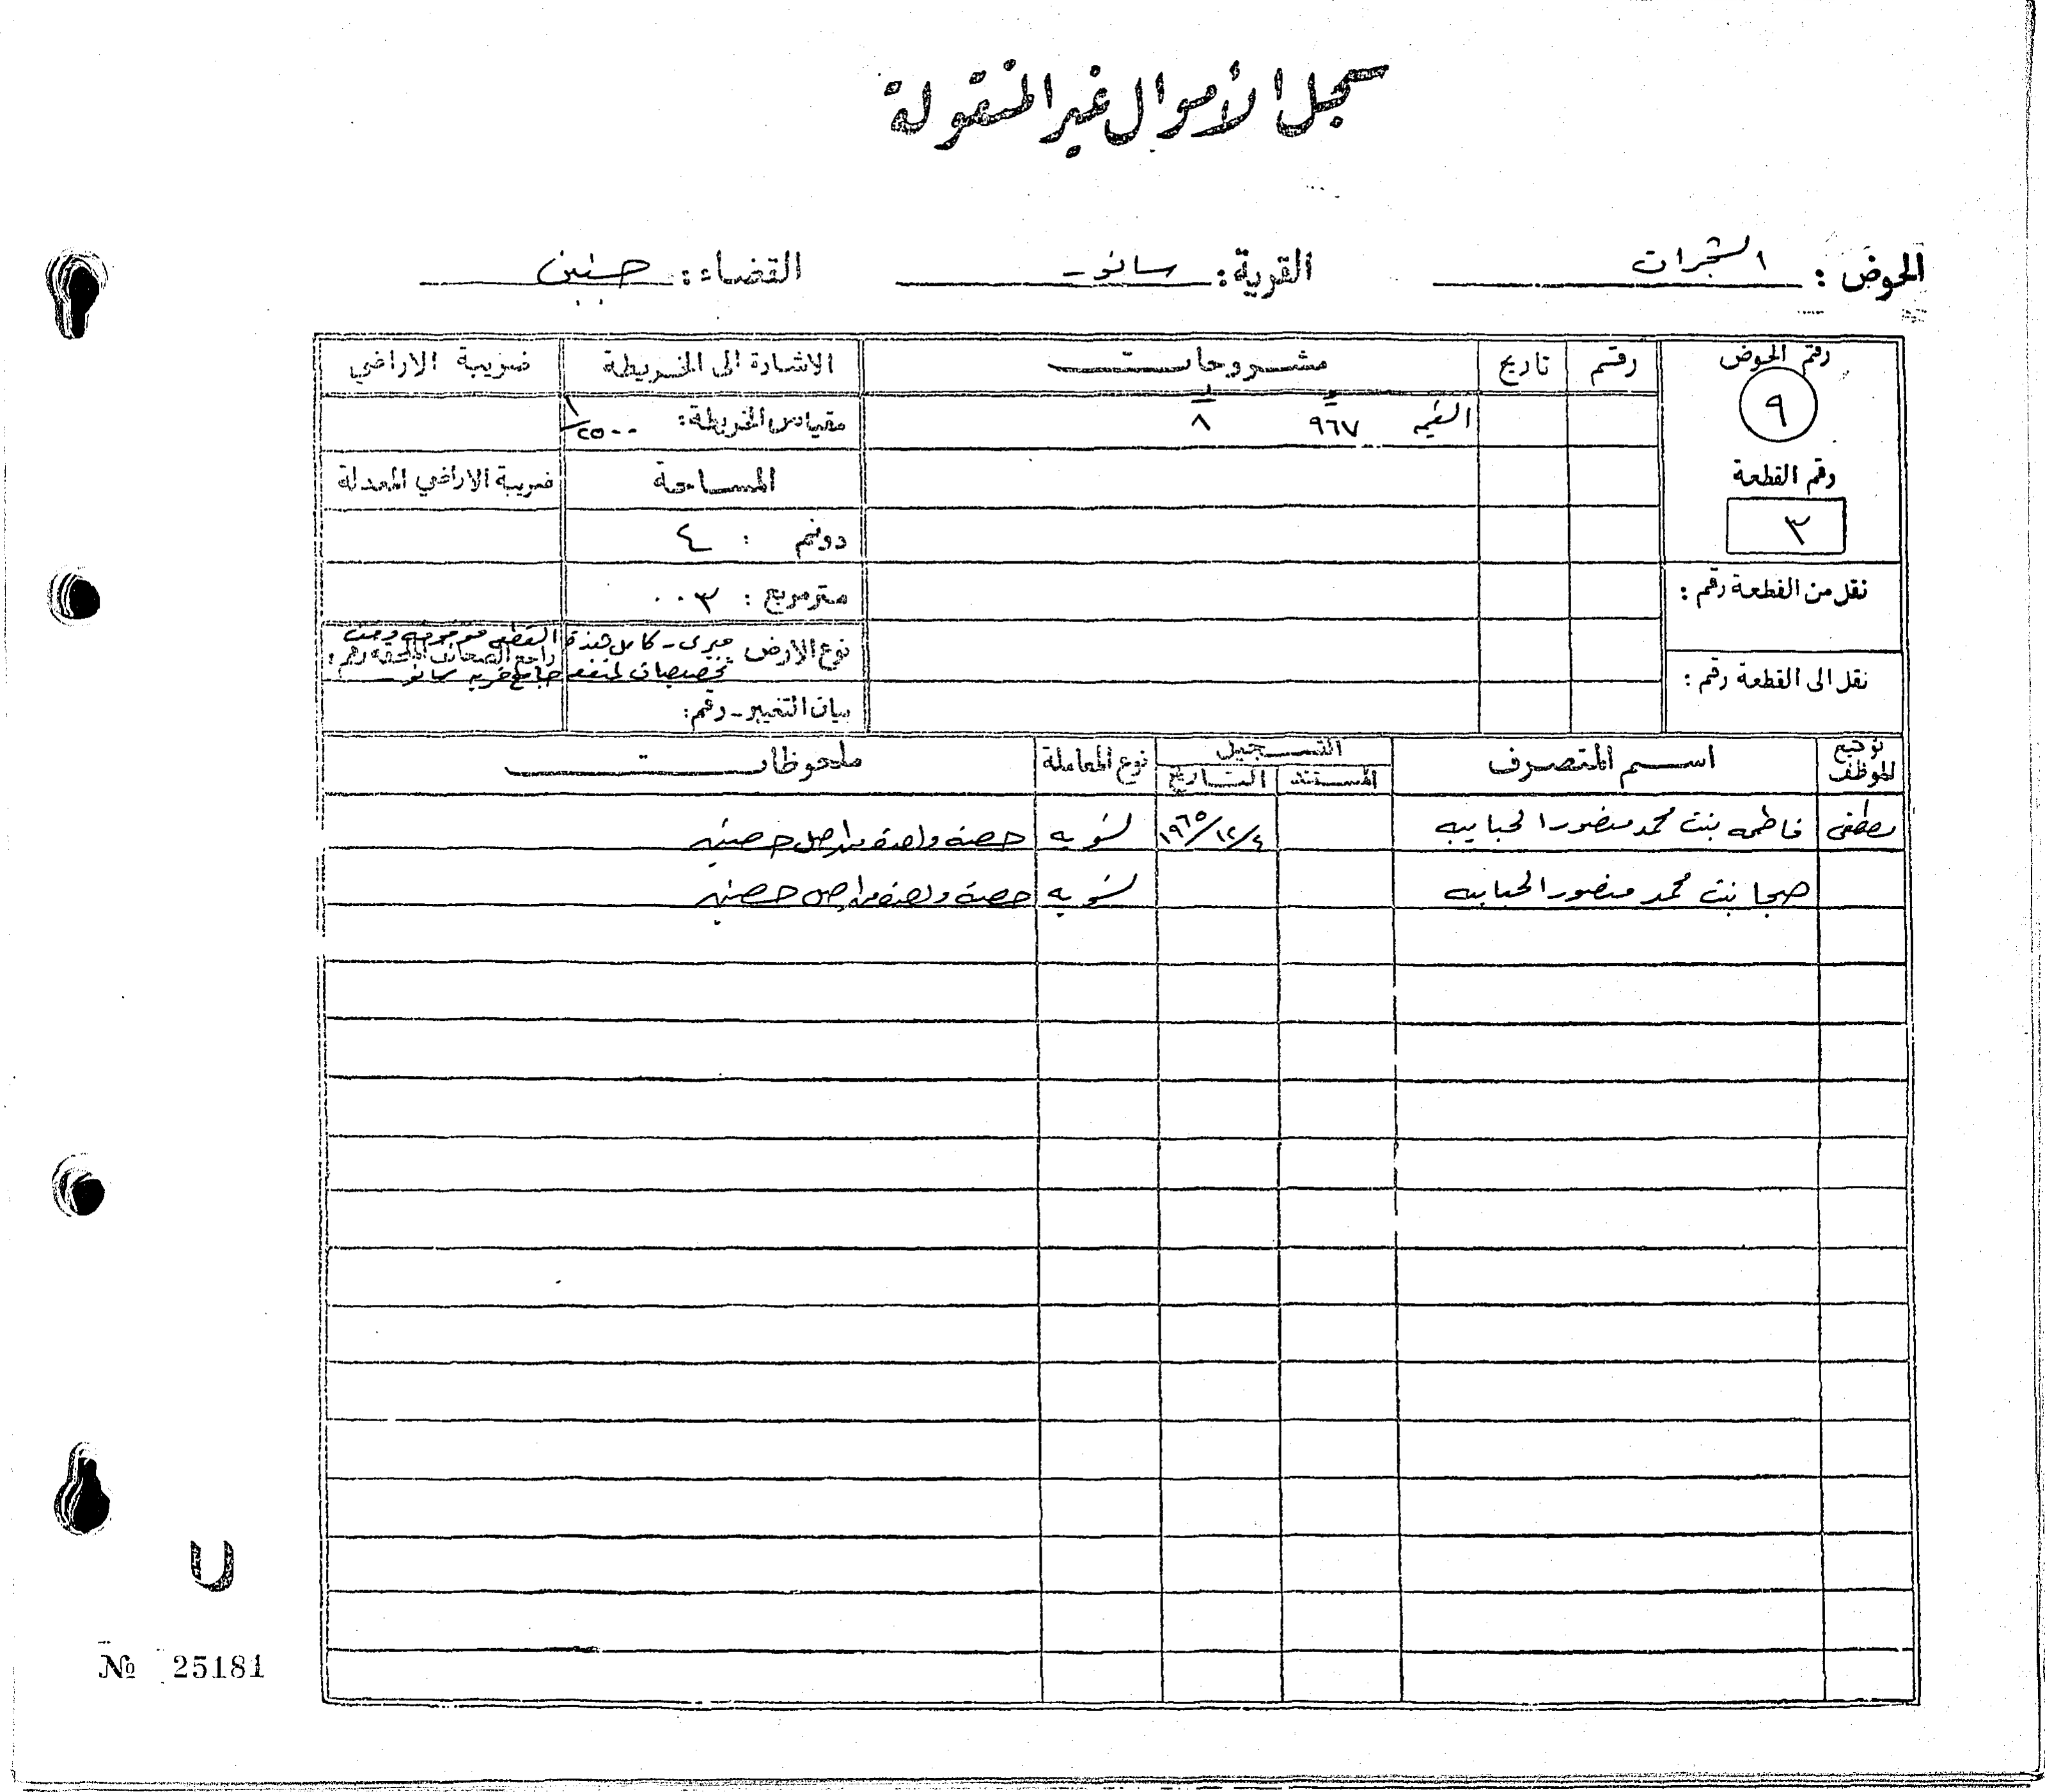 سجل الأموال غير المنقولة
الحوض : الشجرات القرية : سانور القضاء : جنين
رقم الحوض رقم تاريخ مشروحات الاشارة الى الخريطة ضريبة الاراضي
٩
القيمه ٩٦٧ ٨ مقياس الخريطة : ١/٢٥٠٠
رقم القطعة المساحة ضريبة الاراضي المعدلة
٣
دونم : ٤
نقل من القطعة رقم : متر مربع : ٠٠٣
نوع الارض ميري - كامل هذه القطعه موقوفه وقف
راجع الصحائف الملحقة رقم :
تخصيصات لمنفعة جامع قريه سانور
نقل الى القطعة رقم :
بيان التغيير - رقم :
توقيع الموظف اسم المتصرف التسجيل نوع المعاملة ملحوظات
المستند التاريخ
مصطفى فاطمه بنت محمد منصور الحبايبه ١٩٦٥/١٢/٤ تسويه حصة واحدة من اصل حصتين
بنت محمد منصور الحبايبه تسويه حصة واحدة من اصل حصتين
№ 25181